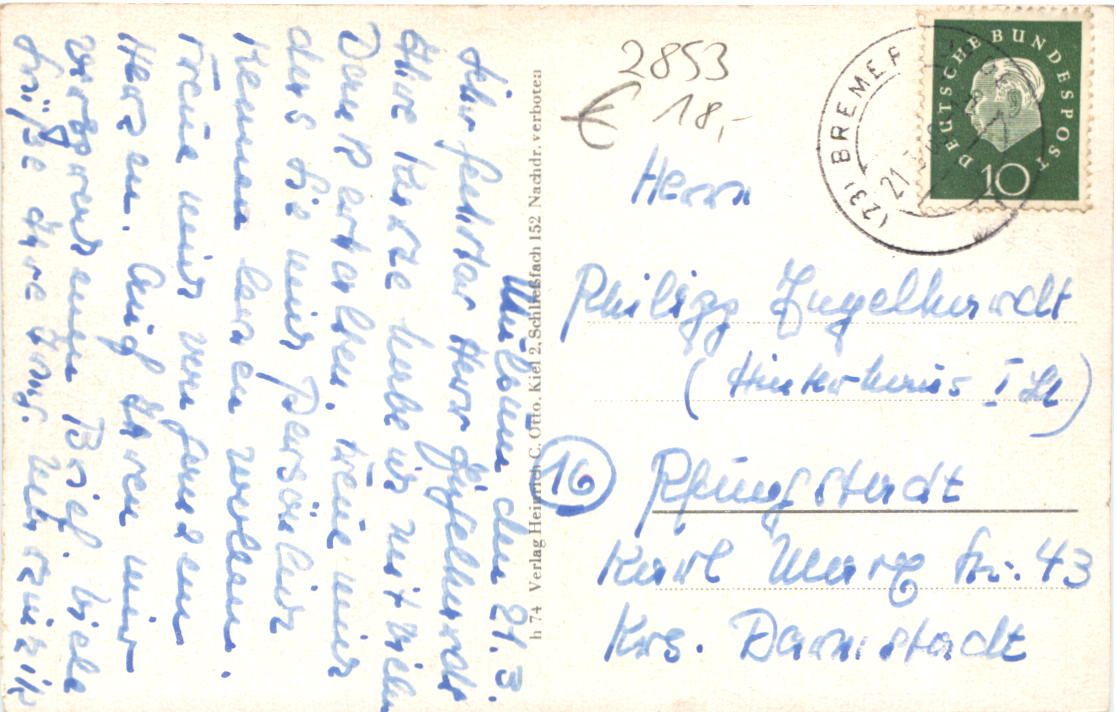 den 21.3.
Herr Engelhardt
Ihre Karte habe ich mit vielen
Dank erhalten. freue mich
das sie mich Persönlich
kennen lernen wollen.
Freue mich von ganzem
Herzen. Auch ihren mir
Brief. Viele
Grüße Ihre
h 74 Verlag Heinrich C. Otto, Kiel 2, Schließfach 152 Nachdr. verboten
2853
€ 18,-
(23) BREMER
21
DEUTSCHE BUNDESPOST
10
Herrn
Philipp Engelhardt
(Hinterhaus I St)
16 Pfungstadt
Karl Marx Str. 43
Krs. Darmstadt